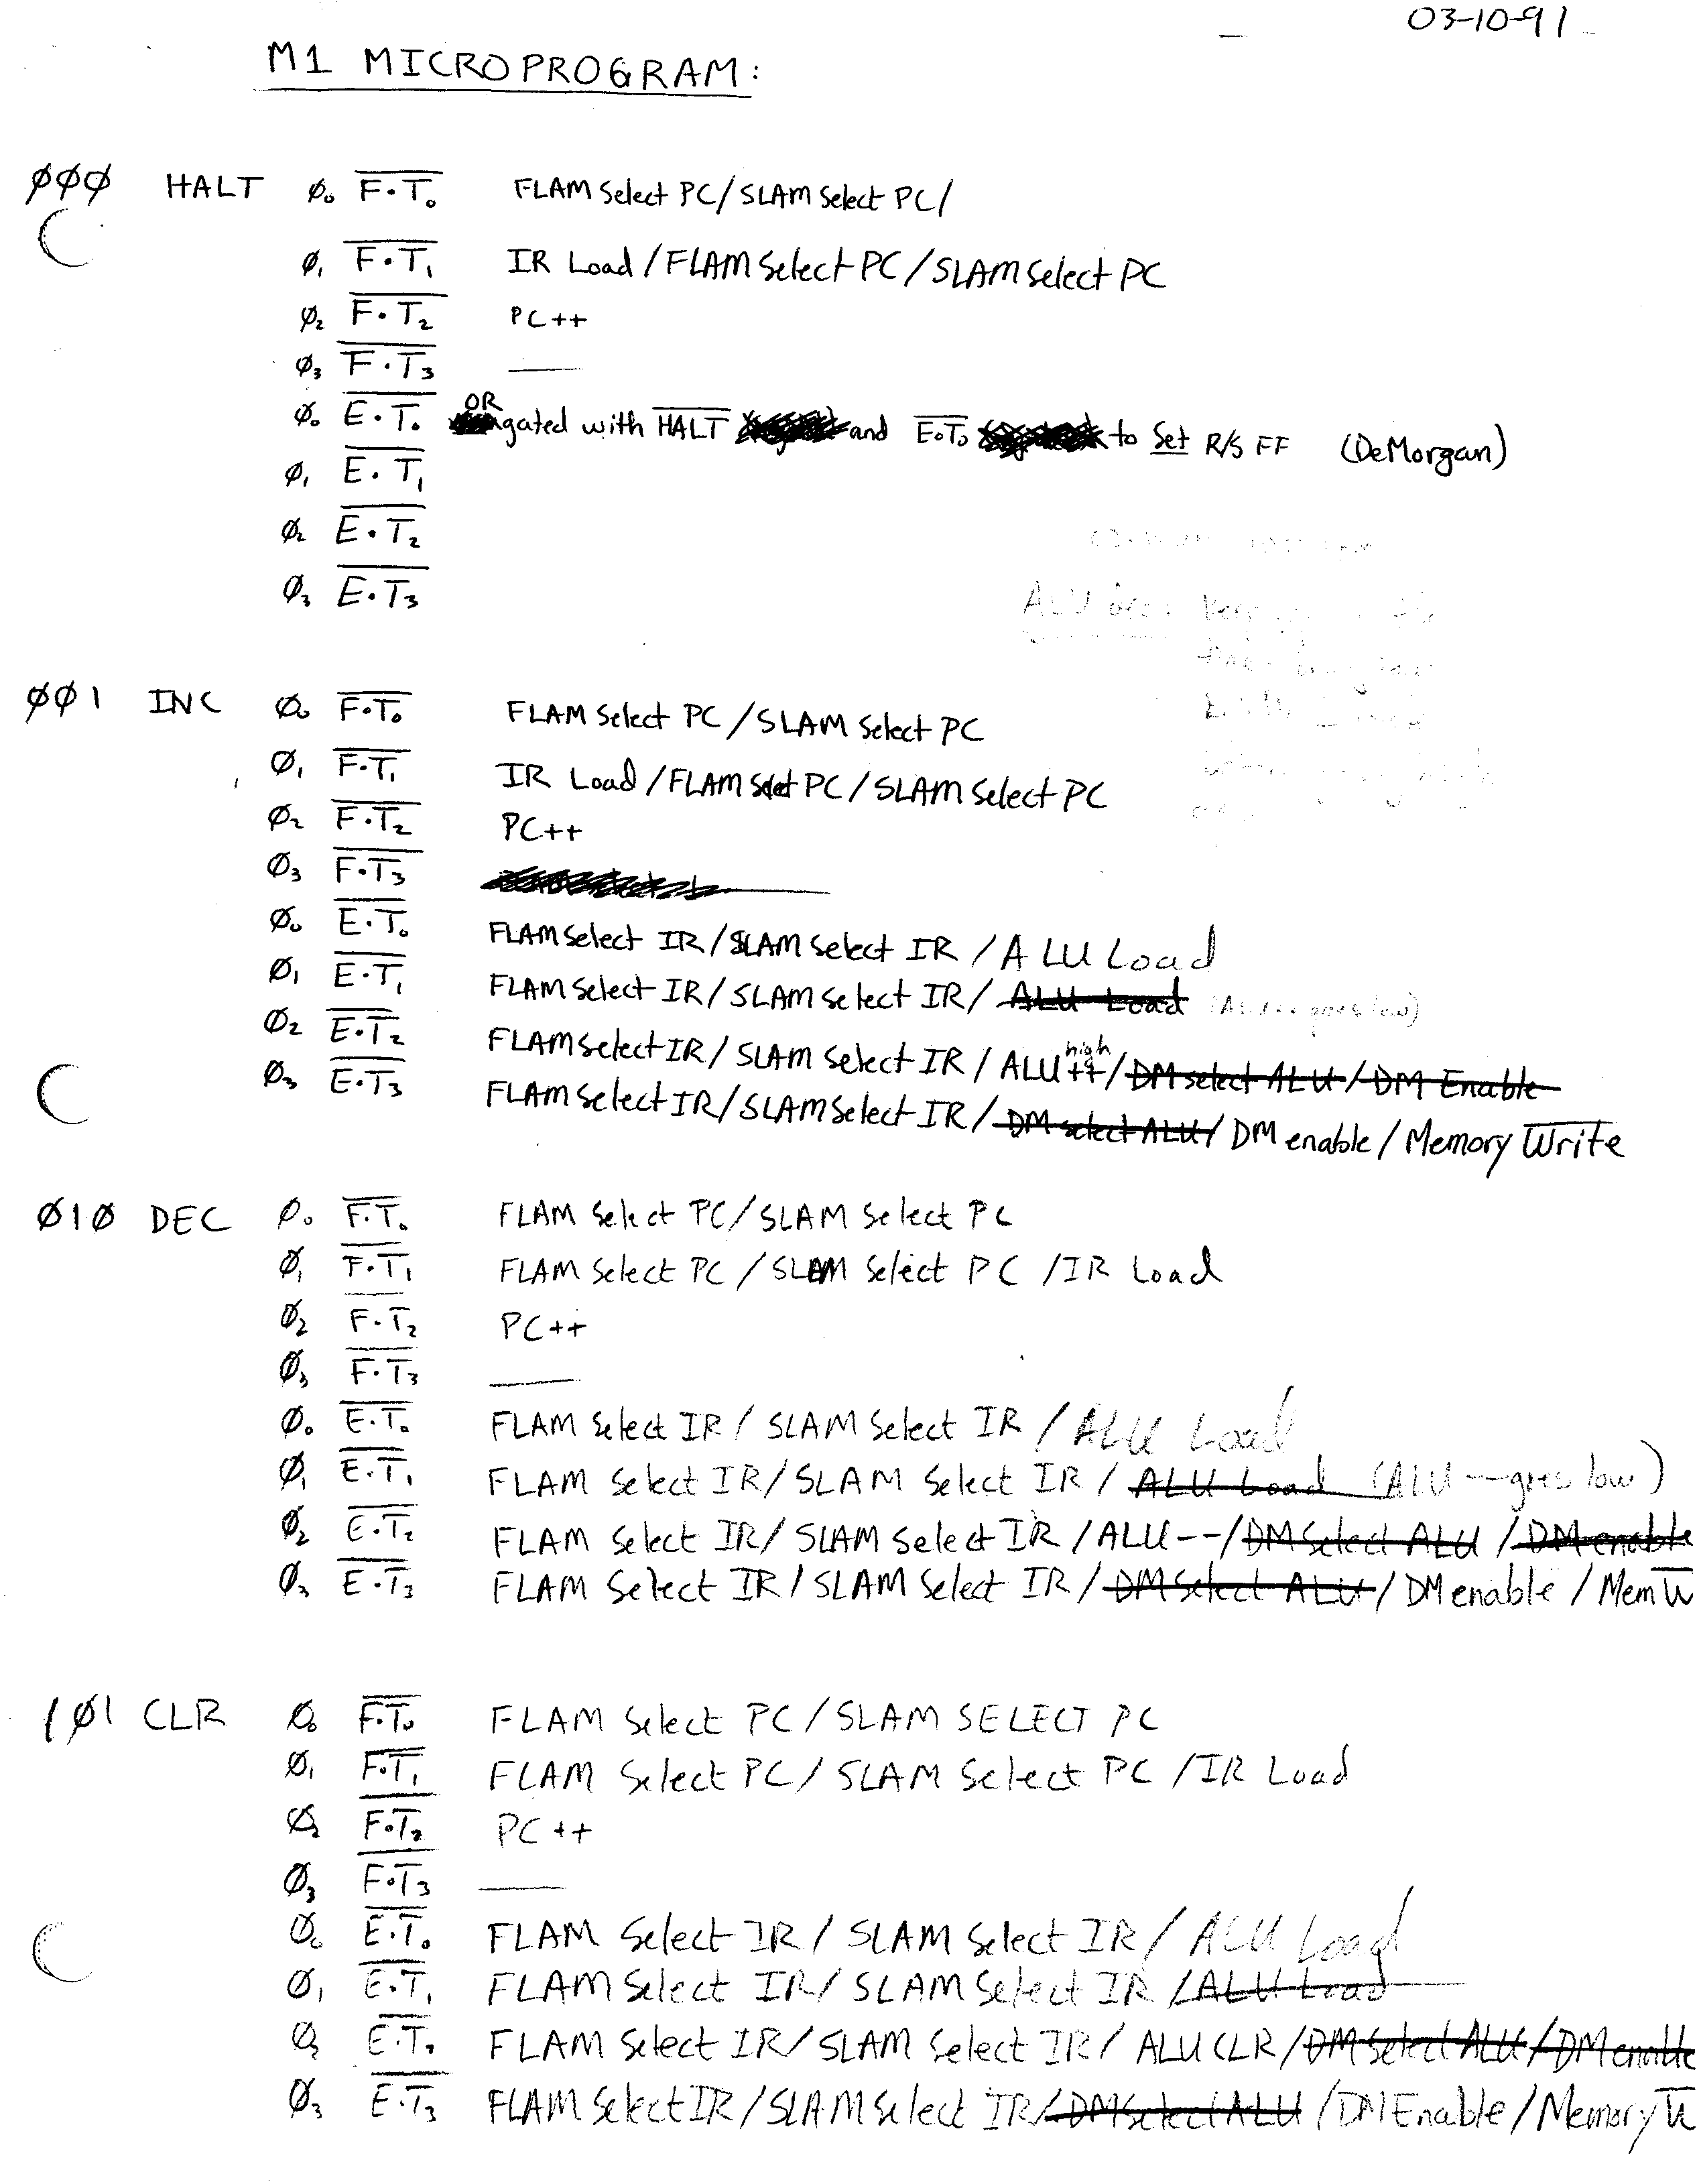 03-10-91
M1 MICROPROGRAM:
ØØØ HALT Ø₀ F·T₀ FLAM Select PC/SLAM Select PC/
Ø₁ F·T₁ IR Load/FLAM Select PC/SLAM Select PC
Ø₂ F·T₂ PC++
Ø₃ F·T₃ ——
Ø₀ E·T₀ OR gated with HALT and E·T₀ to Set R/S FF (DeMorgan)
Ø₁ E·T₁
Ø₂ E·T₂
Ø₃ E·T₃
ALU
ØØ1 INC Ø₀ F·T₀ FLAM Select PC/SLAM Select PC
Ø₁ F·T₁ IR Load/FLAM Select PC/SLAM Select PC
Ø₂ F·T₂ PC++
Ø₃ F·T₃ ——
Ø₀ E·T₀ FLAM Select IR/SLAM Select IR/ALU Load
Ø₁ E·T₁ FLAM Select IR/SLAM Select IR/ALU Load (ALU++ goes low)
Ø₂ E·T₂ FLAM Select IR/SLAM Select IR/ALU++ high/DM select ALU/DM Enable
Ø₃ E·T₃ FLAM Select IR/SLAM Select IR/DM select ALU/DM enable/Memory Write
Ø1Ø DEC Ø₀ F·T₀ FLAM Select PC/SLAM Select PC
Ø₁ F·T₁ FLAM Select PC/SLAM Select PC/IR Load
Ø₂ F·T₂ PC++
Ø₃ F·T₃ ——
Ø₀ E·T₀ FLAM Select IR/SLAM Select IR/ALU Load
Ø₁ E·T₁ FLAM Select IR/SLAM Select IR/ALU Load (ALU-- goes low)
Ø₂ E·T₂ FLAM Select IR/SLAM Select IR/ALU--/DM Select ALU/DM enable
Ø₃ E·T₃ FLAM Select IR/SLAM Select IR/DM Select ALU/DM enable/Mem W
1Ø1 CLR Ø₀ F·T₀ FLAM Select PC/SLAM SELECT PC
Ø₁ F·T₁ FLAM Select PC/SLAM Select PC/IR Load
Ø₂ F·T₂ PC++
Ø₃ F·T₃ ——
Ø₀ E·T₀ FLAM Select IR/SLAM Select IR/ALU Load
Ø₁ E·T₁ FLAM Select IR/SLAM Select IR/ALU Load
Ø₂ E·T₂ FLAM Select IR/SLAM Select IR/ALU CLR/DM Select ALU/DM enable
Ø₃ E·T₃ FLAM Select IR/SLAM Select IR/DM Select ALU/DM Enable/Memory W